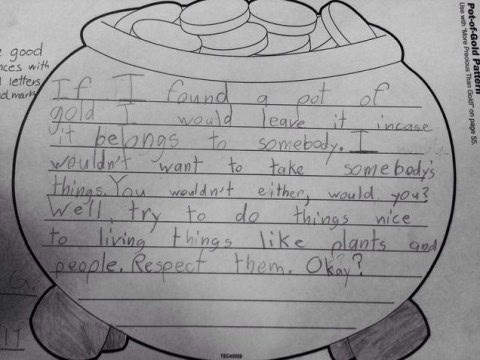 e good
nces with
letters
d marks
If I found a pot of
gold I would leave it incase
it belongs to somebody. I
wouldn't want to take somebody's
things. You wouldn't either, would you?
Well, try to do things nice
to living things like plants and
people. Respect them. Okay?
G.
Pot-of-Gold Pattern
Use with "More Precious Than Gold" on page 55.